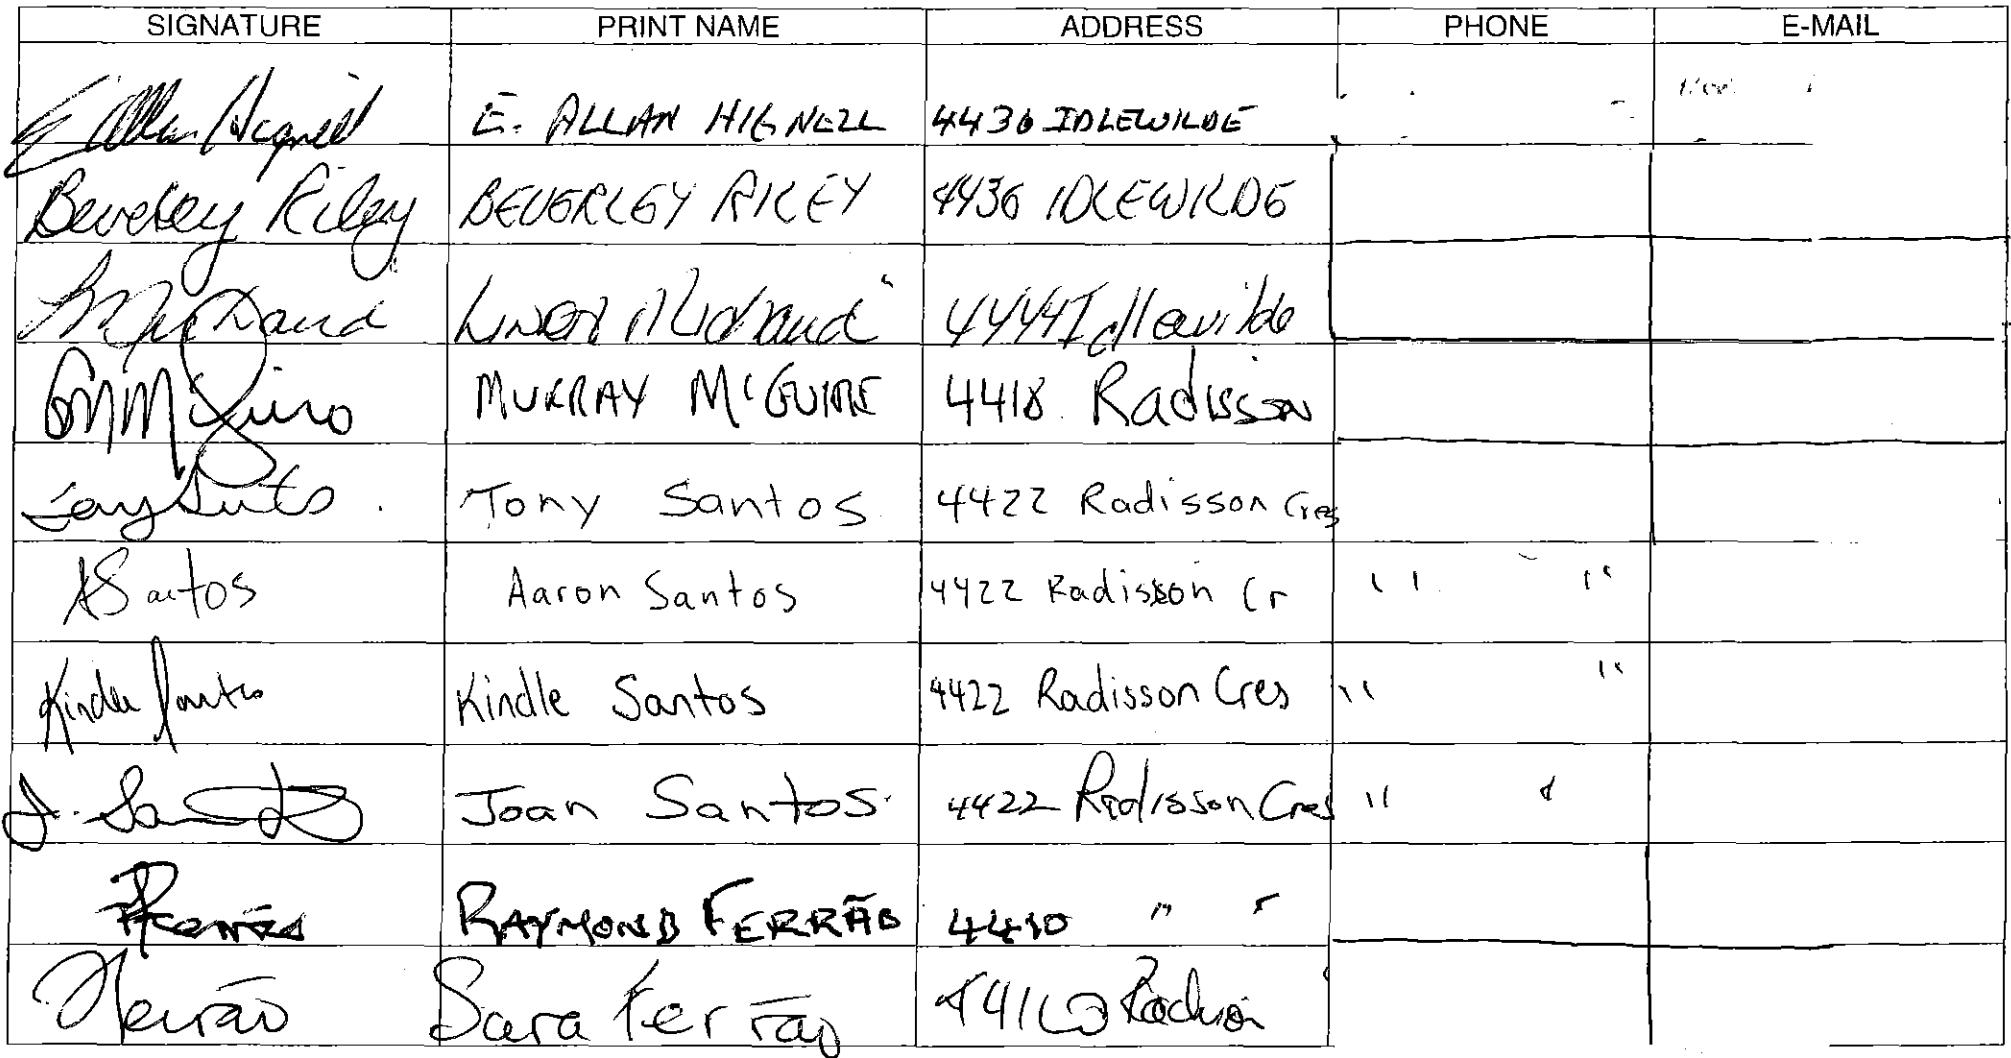 SIGNATURE PRINT NAME ADDRESS PHONE E-MAIL
E. Allan Hignell E. ALLAN HIGNELL 4436 IDLEWILDE
Beverley Riley BEVERLEY RILEY 4436 IDLEWILDE
Linda Michaud 4444 Idlewilde
MURRAY McGUIRE 4418 Radisson
Tony Santos Tony Santos 4422 Radisson Cres
A Santos Aaron Santos 4422 Radisson Cr " "
Kindle Santos Kindle Santos 4422 Radisson Cres " "
J. Santos Joan Santos 4422 Radisson Cres "
RAYMOND FERRÃO 4410 " "
Ferrão Sara Ferrão 4410 Radisson